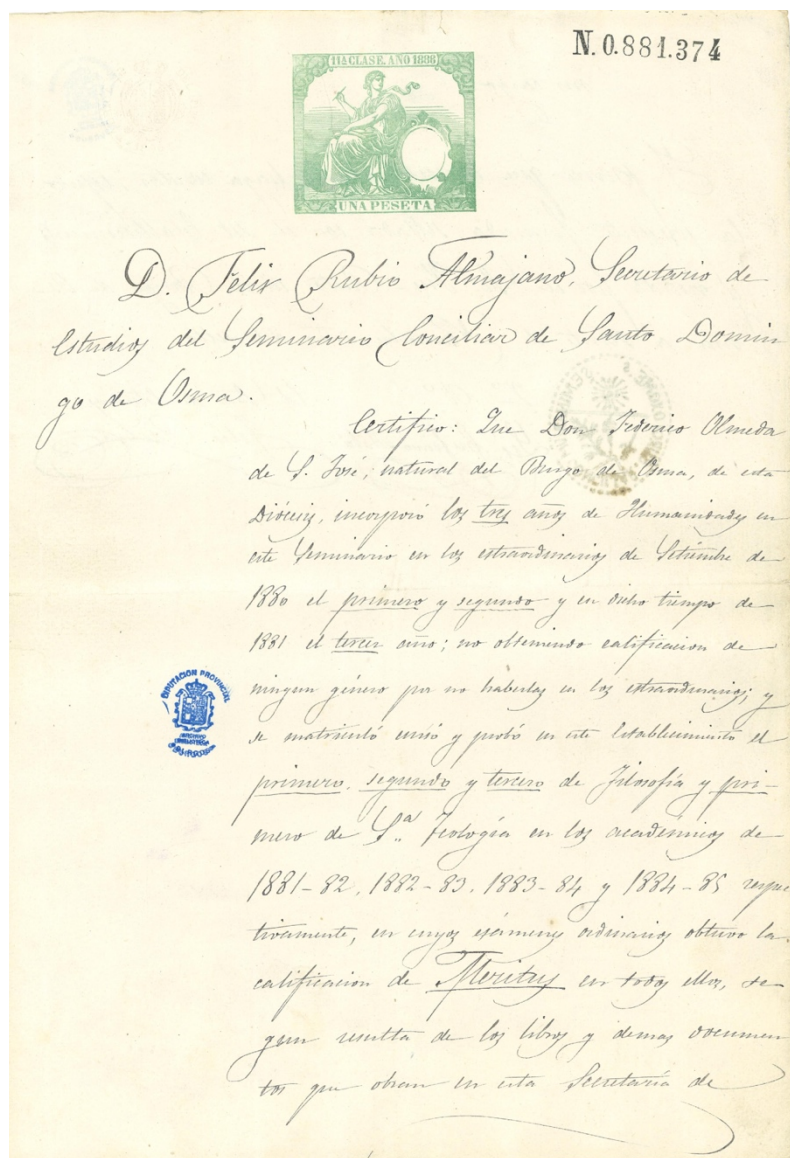 N.0.881.374
11ª CLASE. AÑO 1888
UNA PESETA
D. Felix Rubio Almajano, Secretario de
Estudios del Seminario Conciliar de Santo Domin
go de Osma.
Certifico: Que Don Federico Olmeda
de S. José, natural del Burgo de Osma, de esta
Diócesis, incorporó los tres años de Humanidades en
este Seminario en los extraordinarios de Setiembre de
1880 el primero y segundo y en dicho tiempo de
1881 el tercer año; no obteniendo calificacion de
ningun género por no haberlas en los extraordinarios; y
se matriculó cursó y probó en este Establecimiento el
primero, segundo y tercero de Filosofía y pri-
mero de S.ª Teología en los académicos de
1881-82, 1882-83, 1883-84 y 1884-85 respec
tivamente, en cuyos exámenes ordinarios obtuvo la
calificacion de Meritus en todos ellos, se-
gun resulta de los libros y demas documen
tos que obran en esta Secretaría de
DIPUTACION PROVINCIAL